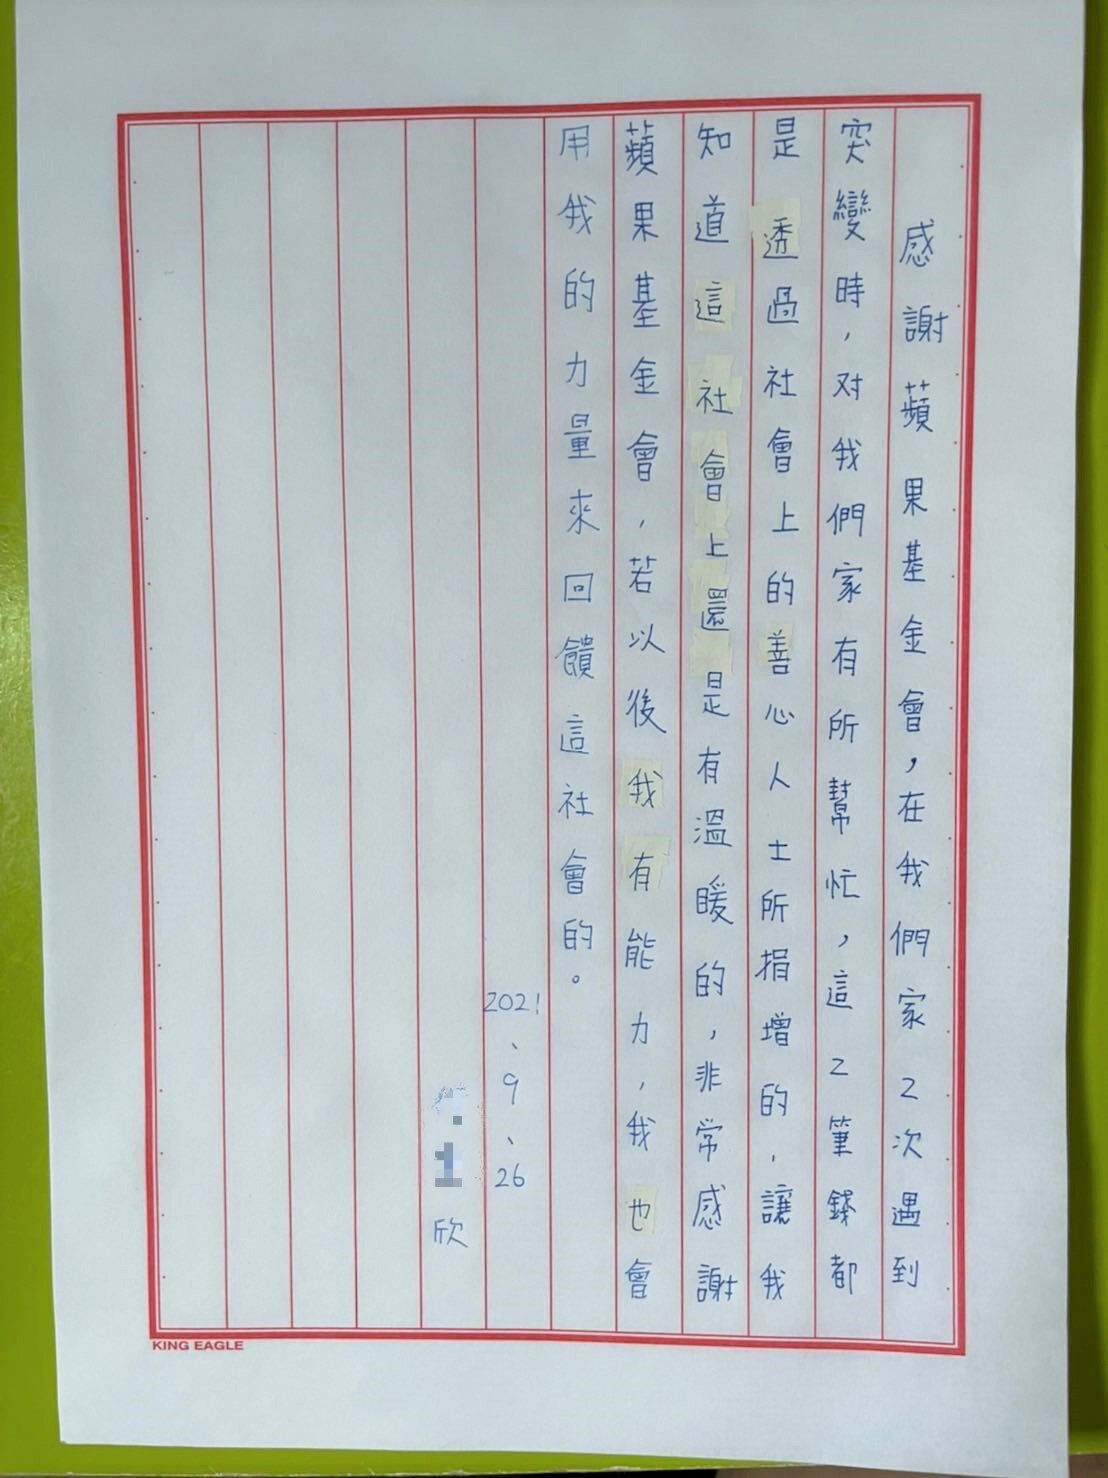 感謝蘋果基金會,在我們家2次遇到
突變時,对我們家有所幫忙,這2筆錢都
是透過社會上的善心人士所捐增的,讓我
知道這社會上還是有溫暖的,非常感謝
蘋果基金會,若以後我有能力,我也會
用我的力量來回饋這社會的。
2021、9、26
欣
KING EAGLE